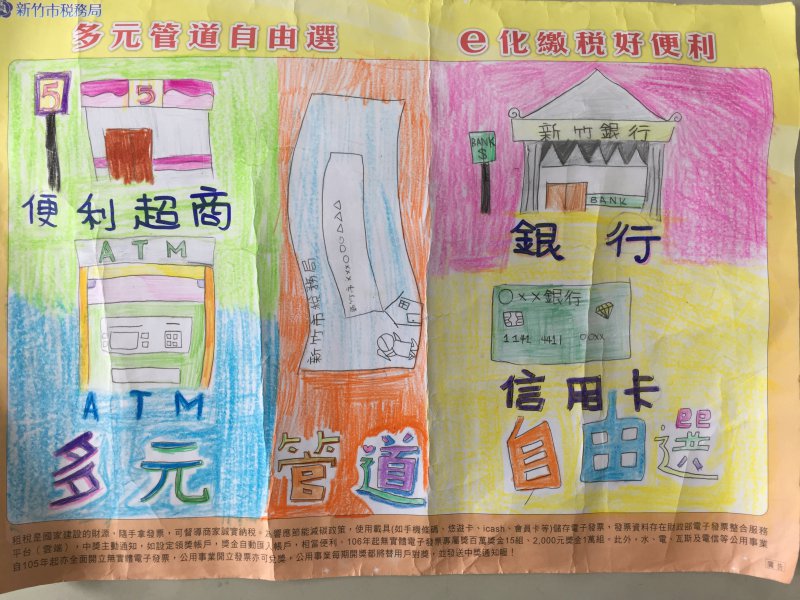 新竹市稅務局
多元管道自由選 e化繳稅好便利
5
5
便利超商
ATM
ATM
新竹市稅務局
BANK
$
新竹銀行
BANK
銀行
○××銀行
1141 4411 00xx
信用卡
多元管道自由選
租稅是國家建設的財源，隨手拿發票，可督導商家誠實納稅。為響應節能減碳政策，使用載具(如手機條碼、悠遊卡、icash、會員卡等)儲存電子發票，發票資料存在財政部電子發票整合服務
平台（雲端），中獎主動通知，如設定領獎帳戶，獎金自動匯入帳戶，相當便利，106年起無實體電子發票專屬獎百萬獎金15組、2,000元獎金1萬組。此外，水、電、瓦斯及電信等公用事業
自105年起亦全面開立無實體電子發票，公用事業開立發票亦可兌獎，公用事業每期開獎都將替用戶對獎，並發送中獎通知喔！
廣告